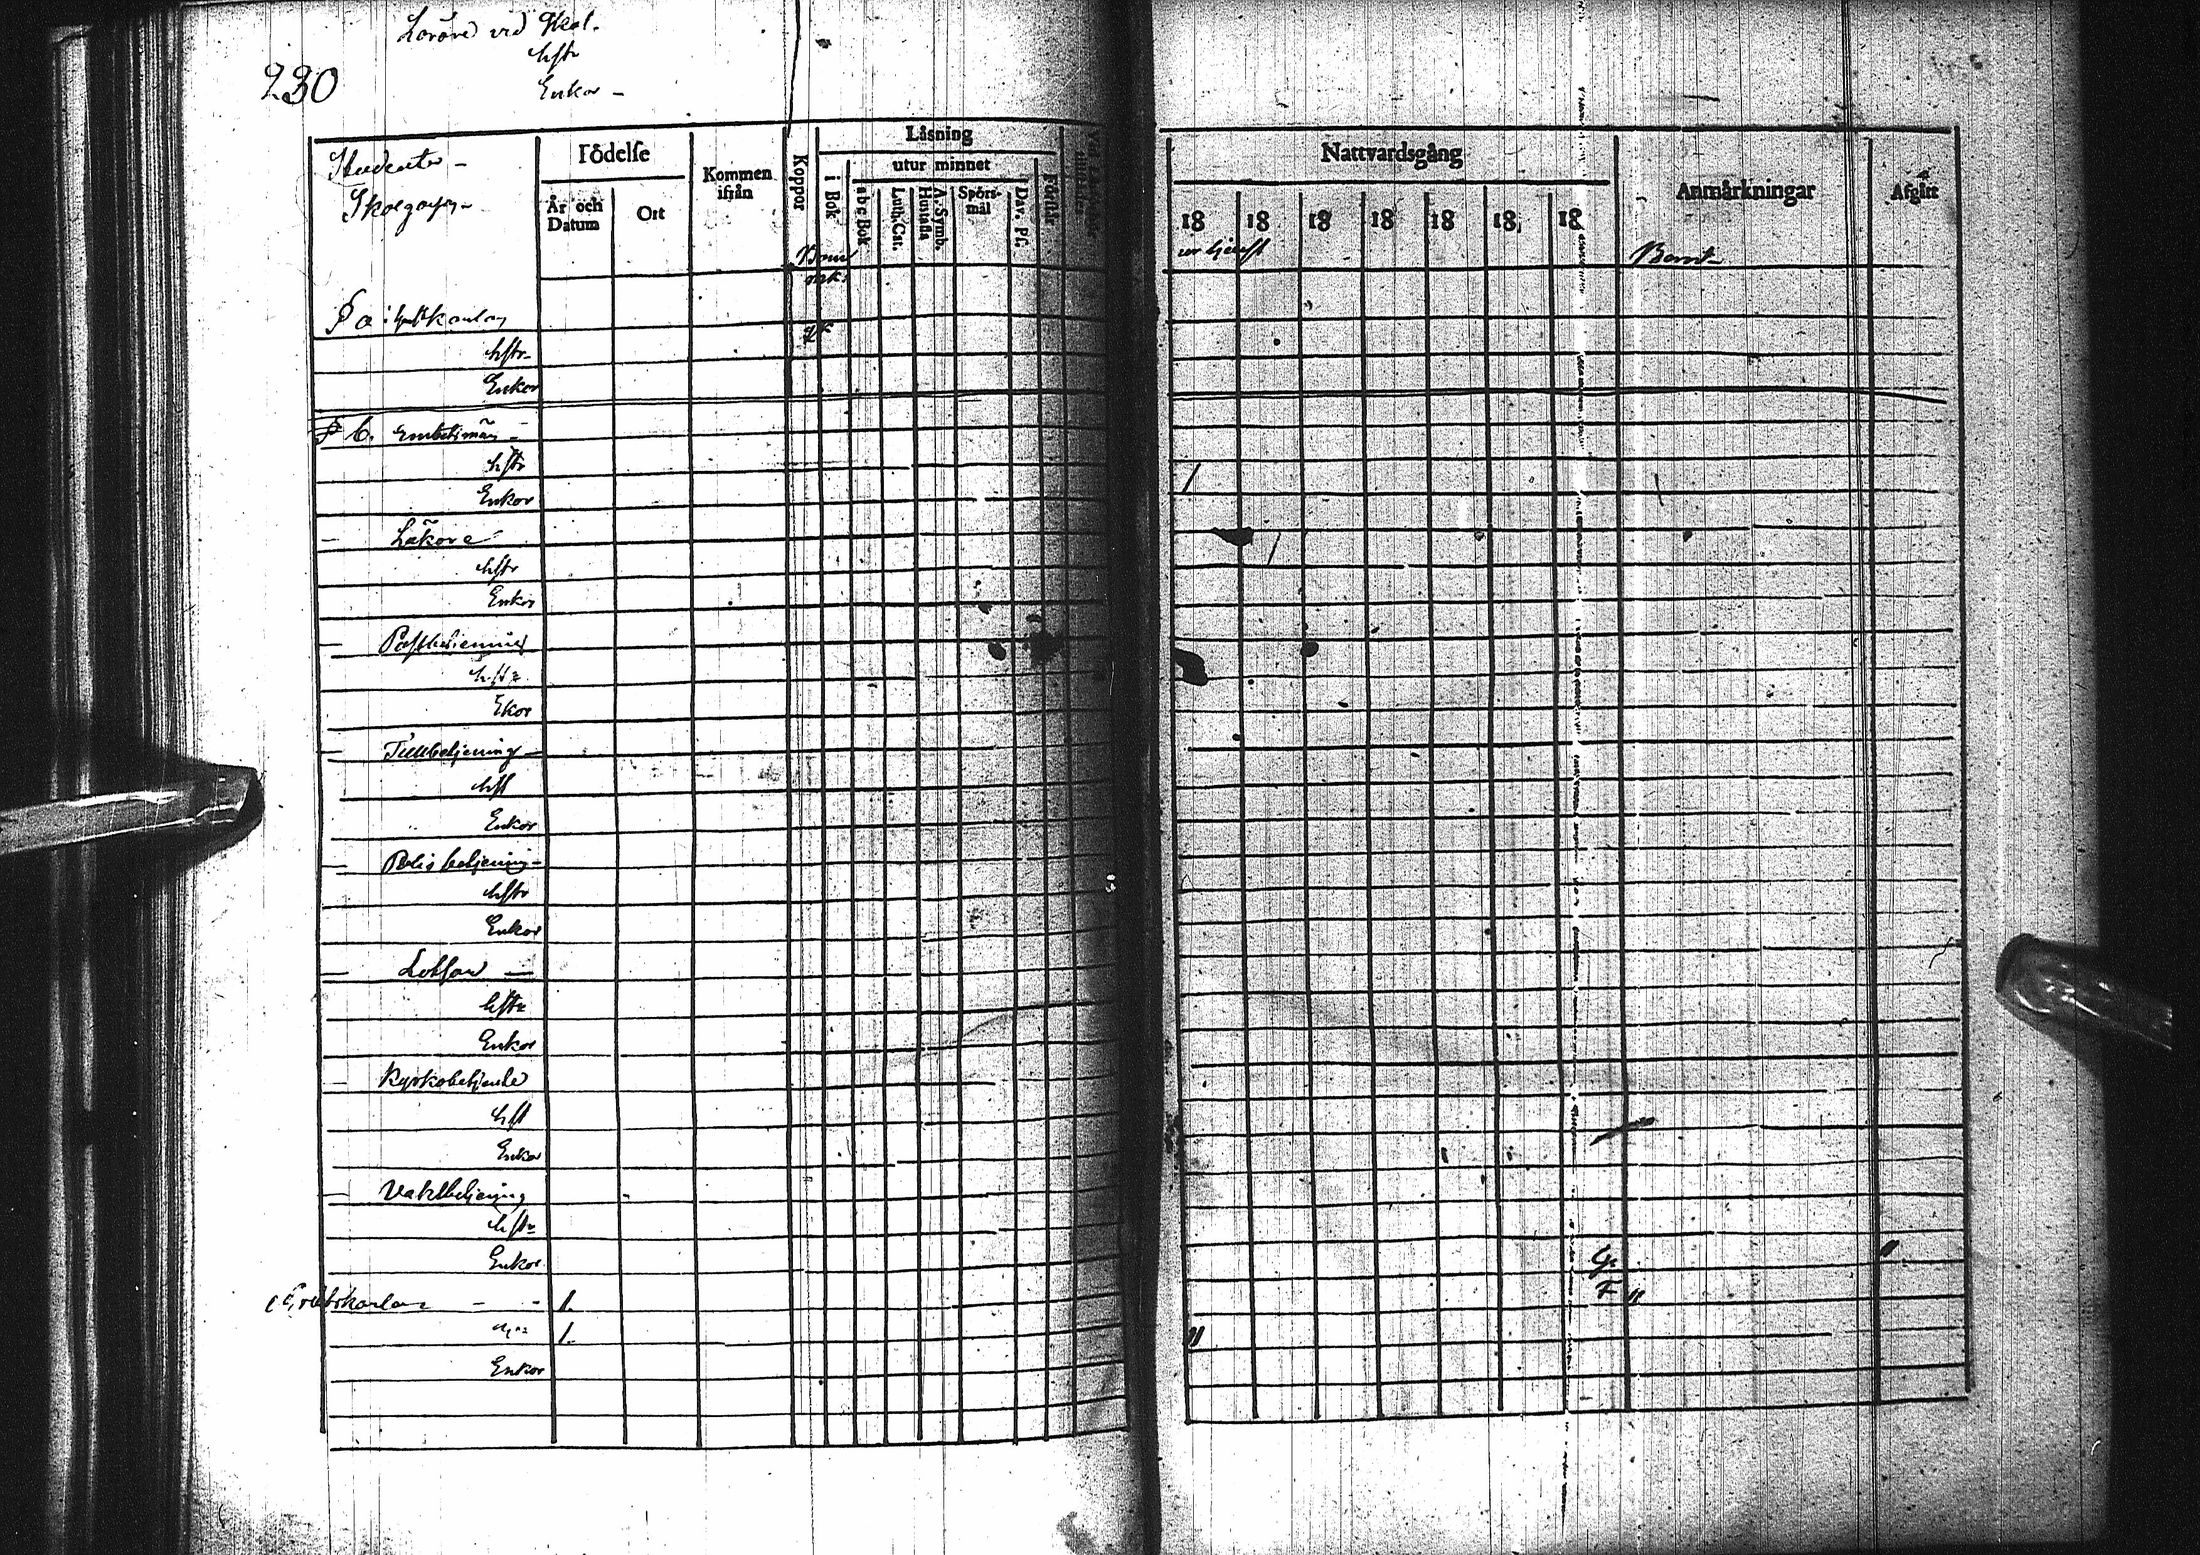 Lärare vid Skol.
hstr
230
Enkor -
Studenter -
Skolgossar -
Födelse
År och Datum
Ort
Kommen ifrån
Koppor
Läsning
i Bok
utur minnet
a b c Bok
Luth. Cat.
A. Symb. Hustafla
Spörs-mål
Dav. Ps.
Förstår
Nattvardsgång
18 18 18 18 18 18 18
Anmärkningar
Afgått
Barn
§ a
hstr
Enkor
§ b. Embetsmän -
hstr
Enkor
- Läkare
hstr
Enkor
- Postbetjening
hstr
Ekor
- Tullbetjening -
hst
Enkor
- Polisbetjening -
hstr
Enkor
- Lotsar -
hstr
Enkor
- Kyrkobetjente
hst
Enkor
- Vaktbetjening
hstr
Enkor
- - 1.
1.
Enkor